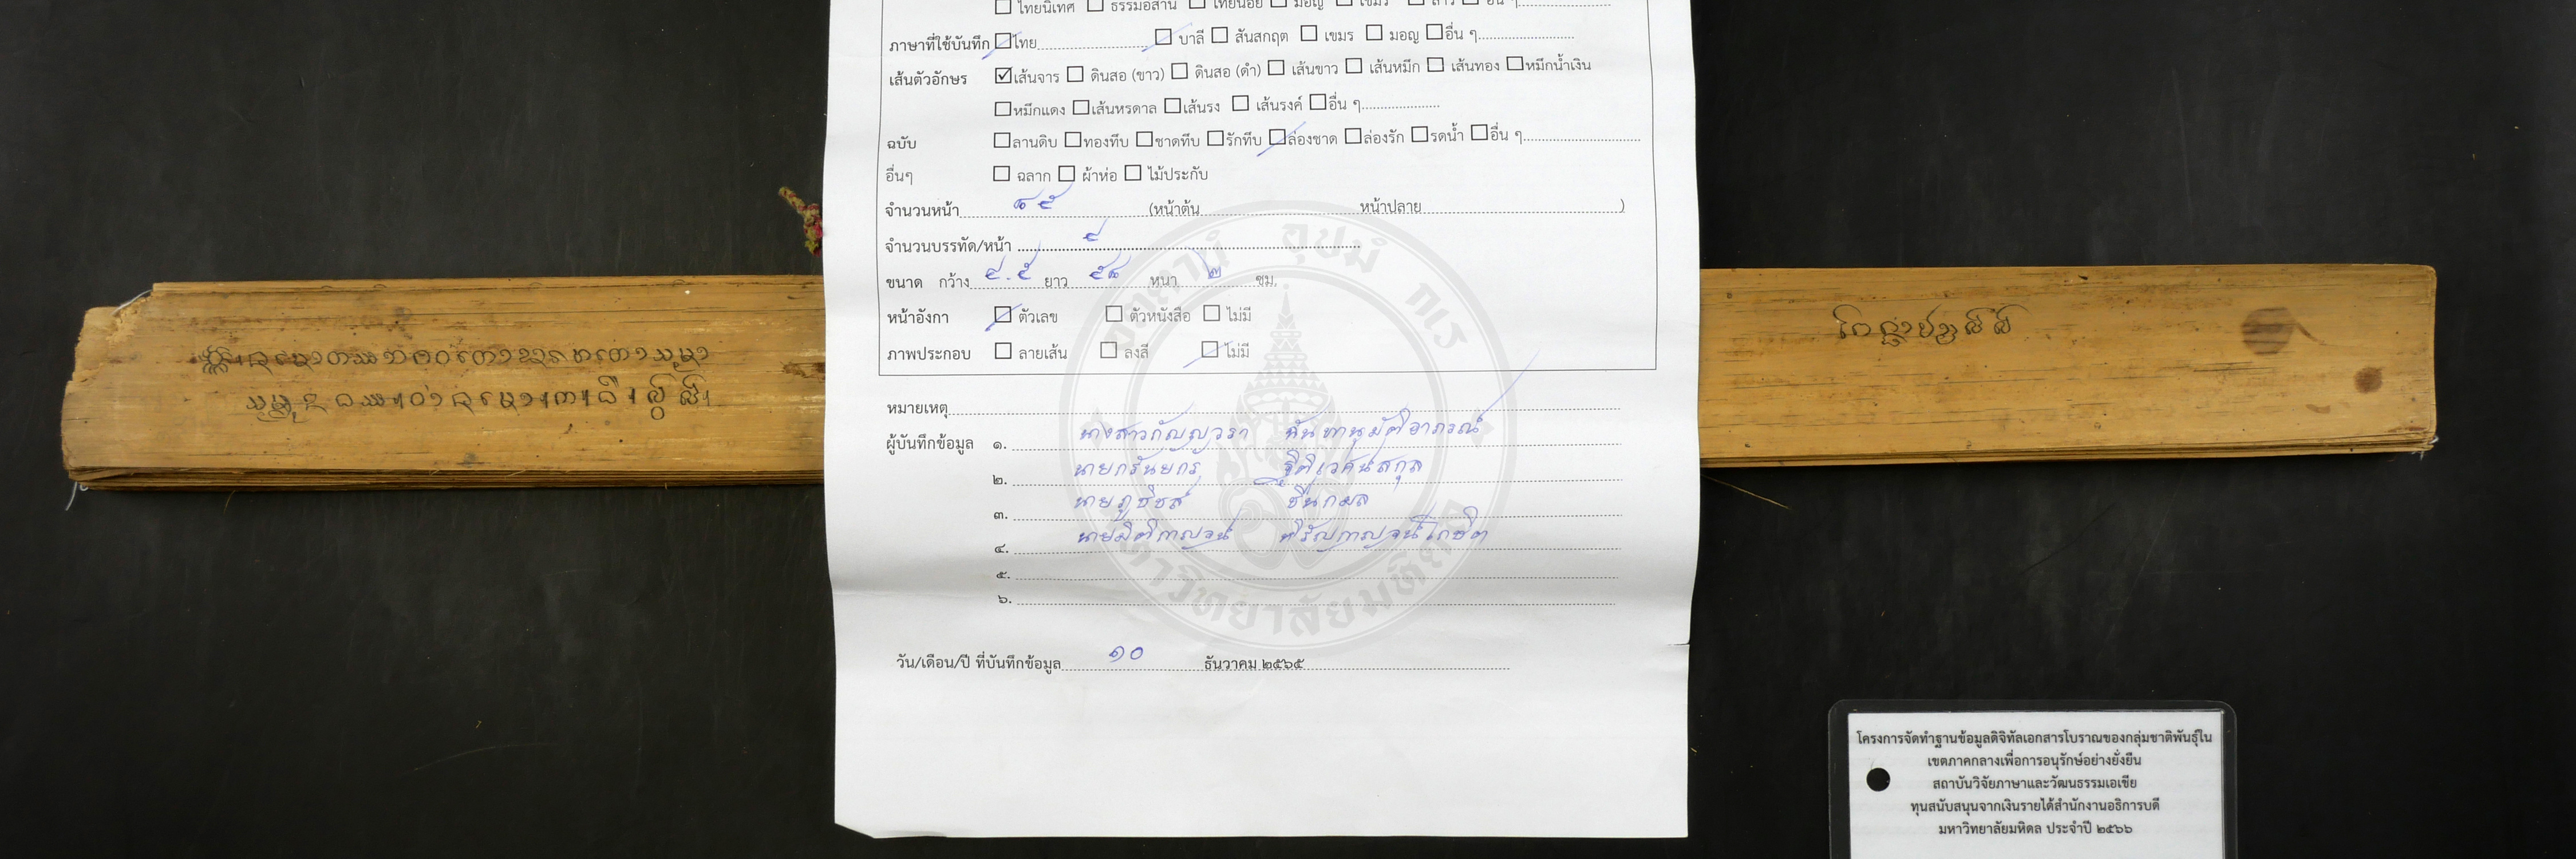 ☐ ไทยนิเทศ ☐ ธรรมอีสาน ☐ ไทยน้อย ☐ มอญ ☐ เขมร ☐ ลาว ☐ อื่น ๆ
ภาษาที่ใช้บันทึก ☑ ไทย ☑ บาลี ☐ สันสกฤต ☐ เขมร ☐ มอญ ☐ อื่น ๆ
เส้นตัวอักษร ☑ เส้นจาร ☐ ดินสอ (ขาว) ☐ ดินสอ (ดำ) ☐ เส้นขาว ☐ เส้นหมึก ☐ เส้นทอง ☐ หมึกน้ำเงิน
☐ หมึกแดง ☐ เส้นหรดาล ☐ เส้นรง ☐ เส้นรงค์ ☐ อื่น ๆ
ฉบับ ☐ ลานดิบ ☐ ทองทึบ ☐ ชาดทึบ ☐ รักทึบ ☑ ล่องชาด ☐ ล่องรัก ☐ รดน้ำ ☐ อื่น ๆ
อื่นๆ ☐ ฉลาก ☐ ผ้าห่อ ☐ ไม้ประกับ
จำนวนหน้า (หน้าต้น หน้าปลาย )
จำนวนบรรทัด/หน้า
ขนาด กว้าง ๔.๕ ยาว ๕๘ หนา ๒ ซม.
หน้าอังกา ☑ ตัวเลข ☐ ตัวหนังสือ ☐ ไม่มี
ภาพประกอบ ☐ ลายเส้น ☐ ลงสี ☑ ไม่มี
หมายเหตุ
ผู้บันทึกข้อมูล ๑. นางสาวกัญญวรา
๒. นายกรันยกร ฐิติเวศนสกุล
๓. นายภูชิชส์ ชื่นกมล
๔. นายมิติกาญจน์ หิรัญกาญจน์โกษิต
๕.
๖.
วัน/เดือน/ปี ที่บันทึกข้อมูล ๑๐ ธันวาคม ๒๕๖๕
อตฺตานํ อุปมํ กเร
มหาวิทยาลัยมหิดล
โครงการจัดทำฐานข้อมูลดิจิทัลเอกสารโบราณของกลุ่มชาติพันธุ์ใน
เขตภาคกลางเพื่อการอนุรักษ์อย่างยั่งยืน
สถาบันวิจัยภาษาและวัฒนธรรมเอเชีย
ทุนสนับสนุนจากเงินรายได้สำนักงานอธิการบดี
มหาวิทยาลัยมหิดล ประจำปี ๒๕๖๖